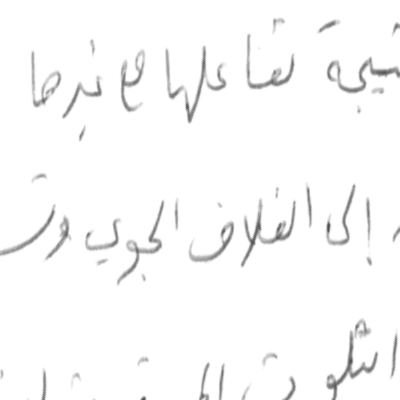 نتيجة تفاعلها مع غيرها
إلى الغلاف الجوي
التلوث